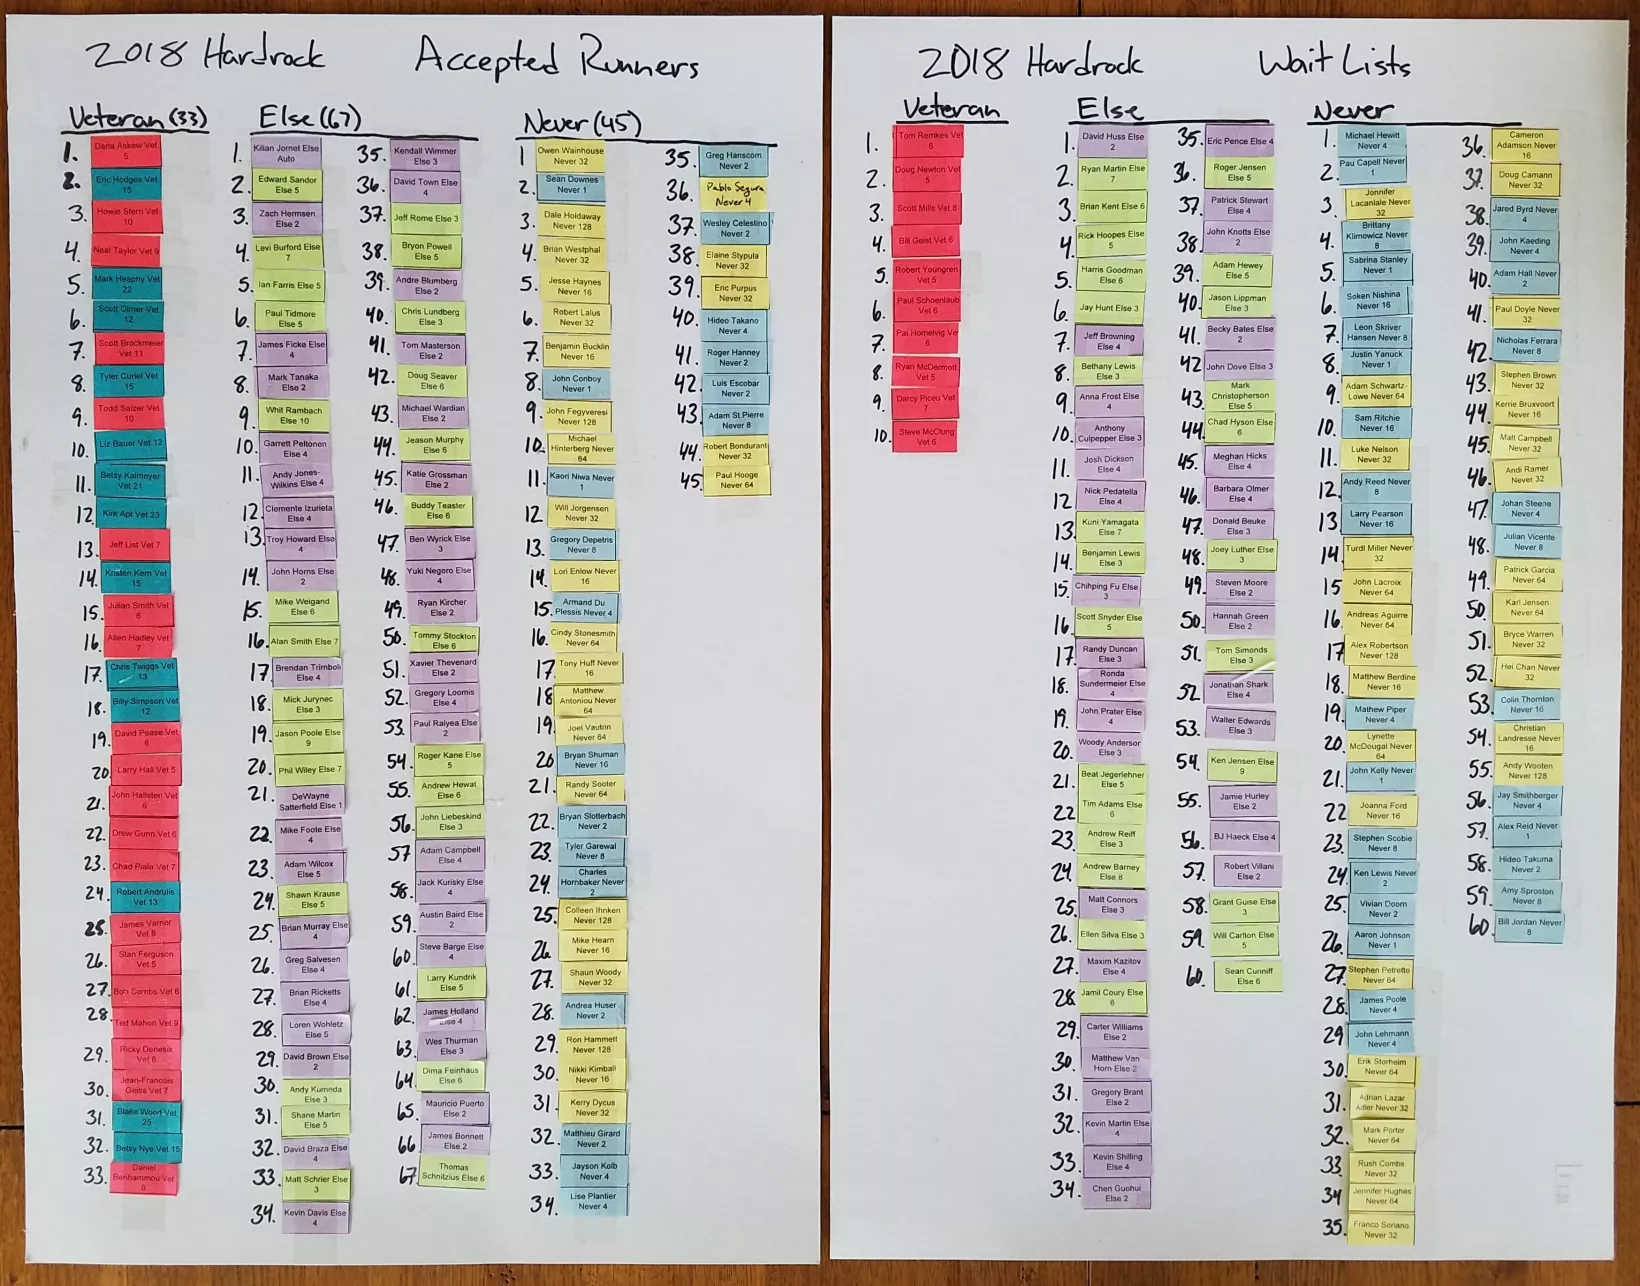 2018 Hardrock Accepted Runners
Veteran (33)
1. Darla Askew Vet
5
2. Eric Hodges Vet
15
3. Howie Stern Vet
10
4. Neal Taylor Vet 9
5. Mark Heaphy Vet
22
6. Scott Olmer Vet
12
7. Scott Brockmeier
Vet 11
8. Tyler Curiel Vet
15
9. Todd Salzer Vet
10
10. Liz Bauer Vet 12
11. Betsy Kalmeyer
Vet 21
12. Kirk Apt Vet 23
13. Jeff List Vet 7
14. Kristen Kern Vet
15
15. Julian Smith Vet
6
16. Allen Hadley Vet
7
17. Chris Twiggs Vet
13
18. Billy Simpson Vet
12
19. David Pease Vet
8
20. Larry Hall Vet 5
21. John Hallsten Vet
6
22. Drew Gunn Vet 6
23. Chad Piala Vet 7
24. Robert Andrulis
Vet 13
25. James Varner
Vet 8
26. Stan Ferguson
Vet 5
27. Bob Combs Vet 6
28. Ted Mahon Vet 9
29. Ricky Denesik
Vet 8
30. Jean-Francois
Geiss Vet 7
31. Blake Wood Vet
25
32. Betsy Nye Vet 15
33. Daniel
Benhammou Vet
9
Else (67)
1. Kilian Jornet Else
Auto
2. Edward Sandor
Else 5
3. Zach Hermsen
Else 2
4. Levi Burford Else
7
5. Ian Farris Else 5
6. Paul Tidmore
Else 5
7. James Ficke Else
4
8. Mark Tanaka
Else 2
9. Whit Rambach
Else 10
10. Garrett Peltonen
Else 4
11. Andy Jones-
Wilkins Else 4
12. Clemente Izurieta
Else 4
13. Troy Howard Else
4
14. John Horns Else
2
15. Mike Weigand
Else 6
16. Alan Smith Else 7
17. Brendan Trimboli
Else 4
18. Mick Jurynec
Else 3
19. Jason Poole Else
9
20. Phil Wiley Else 7
21. DeWayne
Satterfield Else 1
22. Mike Foote Else
4
23. Adam Wilcox
Else 5
24. Shawn Krause
Else 5
25. Brian Murray Else
4
26. Greg Salvesen
Else 4
27. Brian Ricketts
Else 4
28. Loren Wohletz
Else 5
29. David Brown Else
2
30. Andy Kumeda
Else 3
31. Shane Martin
Else 5
32. David Braza Else
4
33. Matt Schrier Else
3
34. Kevin Davis Else
4
35. Kendall Wimmer
Else 3
36. David Town Else
4
37. Jeff Rome Else 3
38. Bryon Powell
Else 5
39. Andre Blumberg
Else 2
40. Chris Lundberg
Else 3
41. Tom Masterson
Else 2
42. Doug Seaver
Else 6
43. Michael Wardian
Else 2
44. Jeason Murphy
Else 6
45. Katie Grossman
Else 2
46. Buddy Teaster
Else 6
47. Ben Wyrick Else
3
48. Yuki Negoro Else
4
49. Ryan Kircher
Else 2
50. Tommy Stockton
Else 6
51. Xavier Thevenard
Else 2
52. Gregory Loomis
Else 4
53. Paul Ralyea Else
2
54. Roger Kane Else
5
55. Andrew Hewat
Else 6
56. John Liebeskind
Else 3
57 Adam Campbell
Else 4
58. Jack Kurisky Else
4
59. Austin Baird Else
2
60. Steve Barge Else
4
61. Larry Kundrik
Else 5
62. James Holland
Else 4
63. Wes Thurman
Else 3
64. Dima Feinhaus
Else 6
65. Mauricio Puerto
Else 2
66 James Bonnett
Else 2
67. Thomas
Schnitzius Else 6
Never (45)
1 Owen Wainhouse
Never 32
2. Sean Downes
Never 1
3. Dale Holdaway
Never 128
4. Brian Westphal
Never 32
5. Jesse Haynes
Never 16
6. Robert Lalus
Never 32
7. Benjamin Bucklin
Never 16
8. John Conboy
Never 1
9. John Fegyveresi
Never 128
10. Michael
Hinterberg Never
64
11. Kaori Niwa Never
1
12 Will Jorgensen
Never 32
13. Gregory Depetris
Never 8
14. Lori Enlow Never
16
15. Armand Du
Plessis Never 4
16. Cindy Stonesmith
Never 64
17 Tony Huff Never
16
18 Matthew
Antoniou Never
64
19. Joel Vautrin
Never 64
20 Bryan Shuman
Never 16
21. Randy Sooter
Never 64
22. Bryan Slotterbach
Never 2
23. Tyler Garewal
Never 8
24. Charles
Hornbaker Never
2
25. Colleen Ihnken
Never 128
26 Mike Hearn
Never 16
27. Shaun Woody
Never 32
28. Andrea Huser
Never 2
29. Ron Hammett
Never 128
30. Nikki Kimball
Never 16
31. Kerry Dycus
Never 32
32. Matthieu Girard
Never 2
33. Jayson Kolb
Never 4
34. Lise Plantier
Never 4
35. Greg Hanscom
Never 2
36. Pablo Segura
Never 4
37. Wesley Celestino
Never 2
38. Elaine Stypula
Never 32
39. Eric Purpus
Never 32
40. Hideo Takano
Never 4
41. Roger Hanney
Never 2
42. Luis Escobar
Never 2
43. Adam St.Pierre
Never 8
44. Robert Bondurant
Never 32
45. Paul Hooge
Never 64
2018 Hardrock Wait Lists
Veteran
1. Tom Remkes Vet
6
2. Doug Newton Vet
5
3. Scott Mills Vet 8
4. Bill Geist Vet 6
5. Robert Youngren
Vet 5
6. Paul Schoenlaub
Vet 6
7. Pat Homelvig Ve
6
8. Ryan McDermott
Vet 5
9. Darcy Piceu Vet
7
10. Steve McClung
Vet 6
Else
1. David Huss Else
2
2. Ryan Martin Else
7
3. Brian Kent Else 6
4. Rick Hoopes Else
5
5. Harris Goodman
Else 6
6. Jay Hunt Else 3
7. Jeff Browning
Else 4
8. Bethany Lewis
Else 3
9. Anna Frost Else
4
10. Anthony
Culpepper Else 3
11. Josh Dickson
Else 4
12 Nick Pedatella
Else 4
13. Kuni Yamagata
Else 7
14. Benjamin Lewis
Else 3
15. Chihping Fu Else
3
16. Scott Snyder Else
5
17. Randy Duncan
Else 3
18. Ronda
Sundermeier Else
4
19. John Prater Else
4
20. Woody Anderson
Else 3
21. Beat Jegerlehner
Else 5
22 Tim Adams Else
6
23. Andrew Reiff
Else 3
24. Andrew Barney
Else 8
25. Matt Connors
Else 3
26. Ellen Silva Else 3
27. Maxim Kazitov
Else 4
28. Jamil Coury Else
6
29. Carter Williams
Else 2
30. Matthew Van
Horn Else 2
31. Gregory Brant
Else 2
32. Kevin Martin Else
4
33. Kevin Shilling
Else 4
34. Chen Guohui
Else 2
35. Eric Pence Else 4
36. Roger Jensen
Else 5
37. Patrick Stewart
Else 4
38. John Knotts Else
2
39. Adam Hewey
Else 5
40. Jason Lippman
Else 3
41. Becky Bates Else
2
42 John Dove Else 3
43. Mark
Christopherson
Else 5
44. Chad Hyson Else
6
45. Meghan Hicks
Else 4
46. Barbara Olmer
Else 4
47. Donald Beuke
Else 3
48. Joey Luther Else
3
49. Steven Moore
Else 2
50. Hannah Green
Else 2
51. Tom Simonds
Else 3
52 Jonathan Shark
Else 4
53. Walter Edwards
Else 3
54. Ken Jensen Else
9
55. Jamie Hurley
Else 2
56. BJ Haeck Else 4
57. Robert Villani
Else 2
58. Grant Guise Else
3
59. Will Carlton Else
5
60. Sean Cunniff
Else 6
Never
1. Michael Hewitt
Never 4
2. Pau Capell Never
1
3. Jennifer
Lacanlale Never
32
4. Brittany
Klimowicz Never
8
5. Sabrina Stanley
Never 1
6. Soken Nishina
Never 16
7. Leon Skriver
Hansen Never 8
8. Justin Yanuck
Never 1
9. Adam Schwartz-
Lowe Never 64
10. Sam Ritchie
Never 16
11. Luke Nelson
Never 32
12. Andy Reed Never
8
13. Larry Pearson
Never 16
14. Turdl Miller Never
32
15 John Lacroix
Never 64
16. Andreas Aguirre
Never 64
17 Alex Robertson
Never 128
18. Matthew Berdine
Never 16
19. Mathew Piper
Never 4
20. Lynette
McDougal Never
64
21. John Kelly Never
1
22 Joanna Ford
Never 16
23. Stephen Scobie
Never 8
24 Ken Lewis Never
2
25. Vivian Doorn
Never 2
26. Aaron Johnson
Never 1
27. Stephen Petretto
Never 64
28. James Poole
Never 4
29 John Lehmann
Never 4
30. Erik Storheim
Never 64
31. Adrian Lazar
Adler Never 32
32. Mark Porter
Never 64
33. Rush Combs
Never 32
34 Jennifer Hughes
Never 64
35. Franco Soriano
Never 32
36. Cameron
Adamson Never
16
37. Doug Camann
Never 32
38. Jared Byrd Never
4
39. John Kaeding
Never 4
40. Adam Hall Never
2
41. Paul Doyle Never
32
42. Nicholas Ferrara
Never 8
43. Stephen Brown
Never 32
44. Kerrie Bruxvoort
Never 16
45. Matt Campbell
Never 32
46. Andi Ramer
Never 32
47. Johan Steene
Never 4
48. Julian Vicente
Never 8
49. Patrick Garcia
Never 64
50. Karl Jensen
Never 64
51. Bryce Warren
Never 32
52. Hei Chan Never
32
53. Colin Thornton
Never 16
54. Christian
Landresse Never
16
55. Andy Wooten
Never 128
56. Jay Smithberger
Never 4
57. Alex Reid Never
1
58. Hideo Takuma
Never 2
59. Amy Sproston
Never 8
60. Bill Jordan Never
8